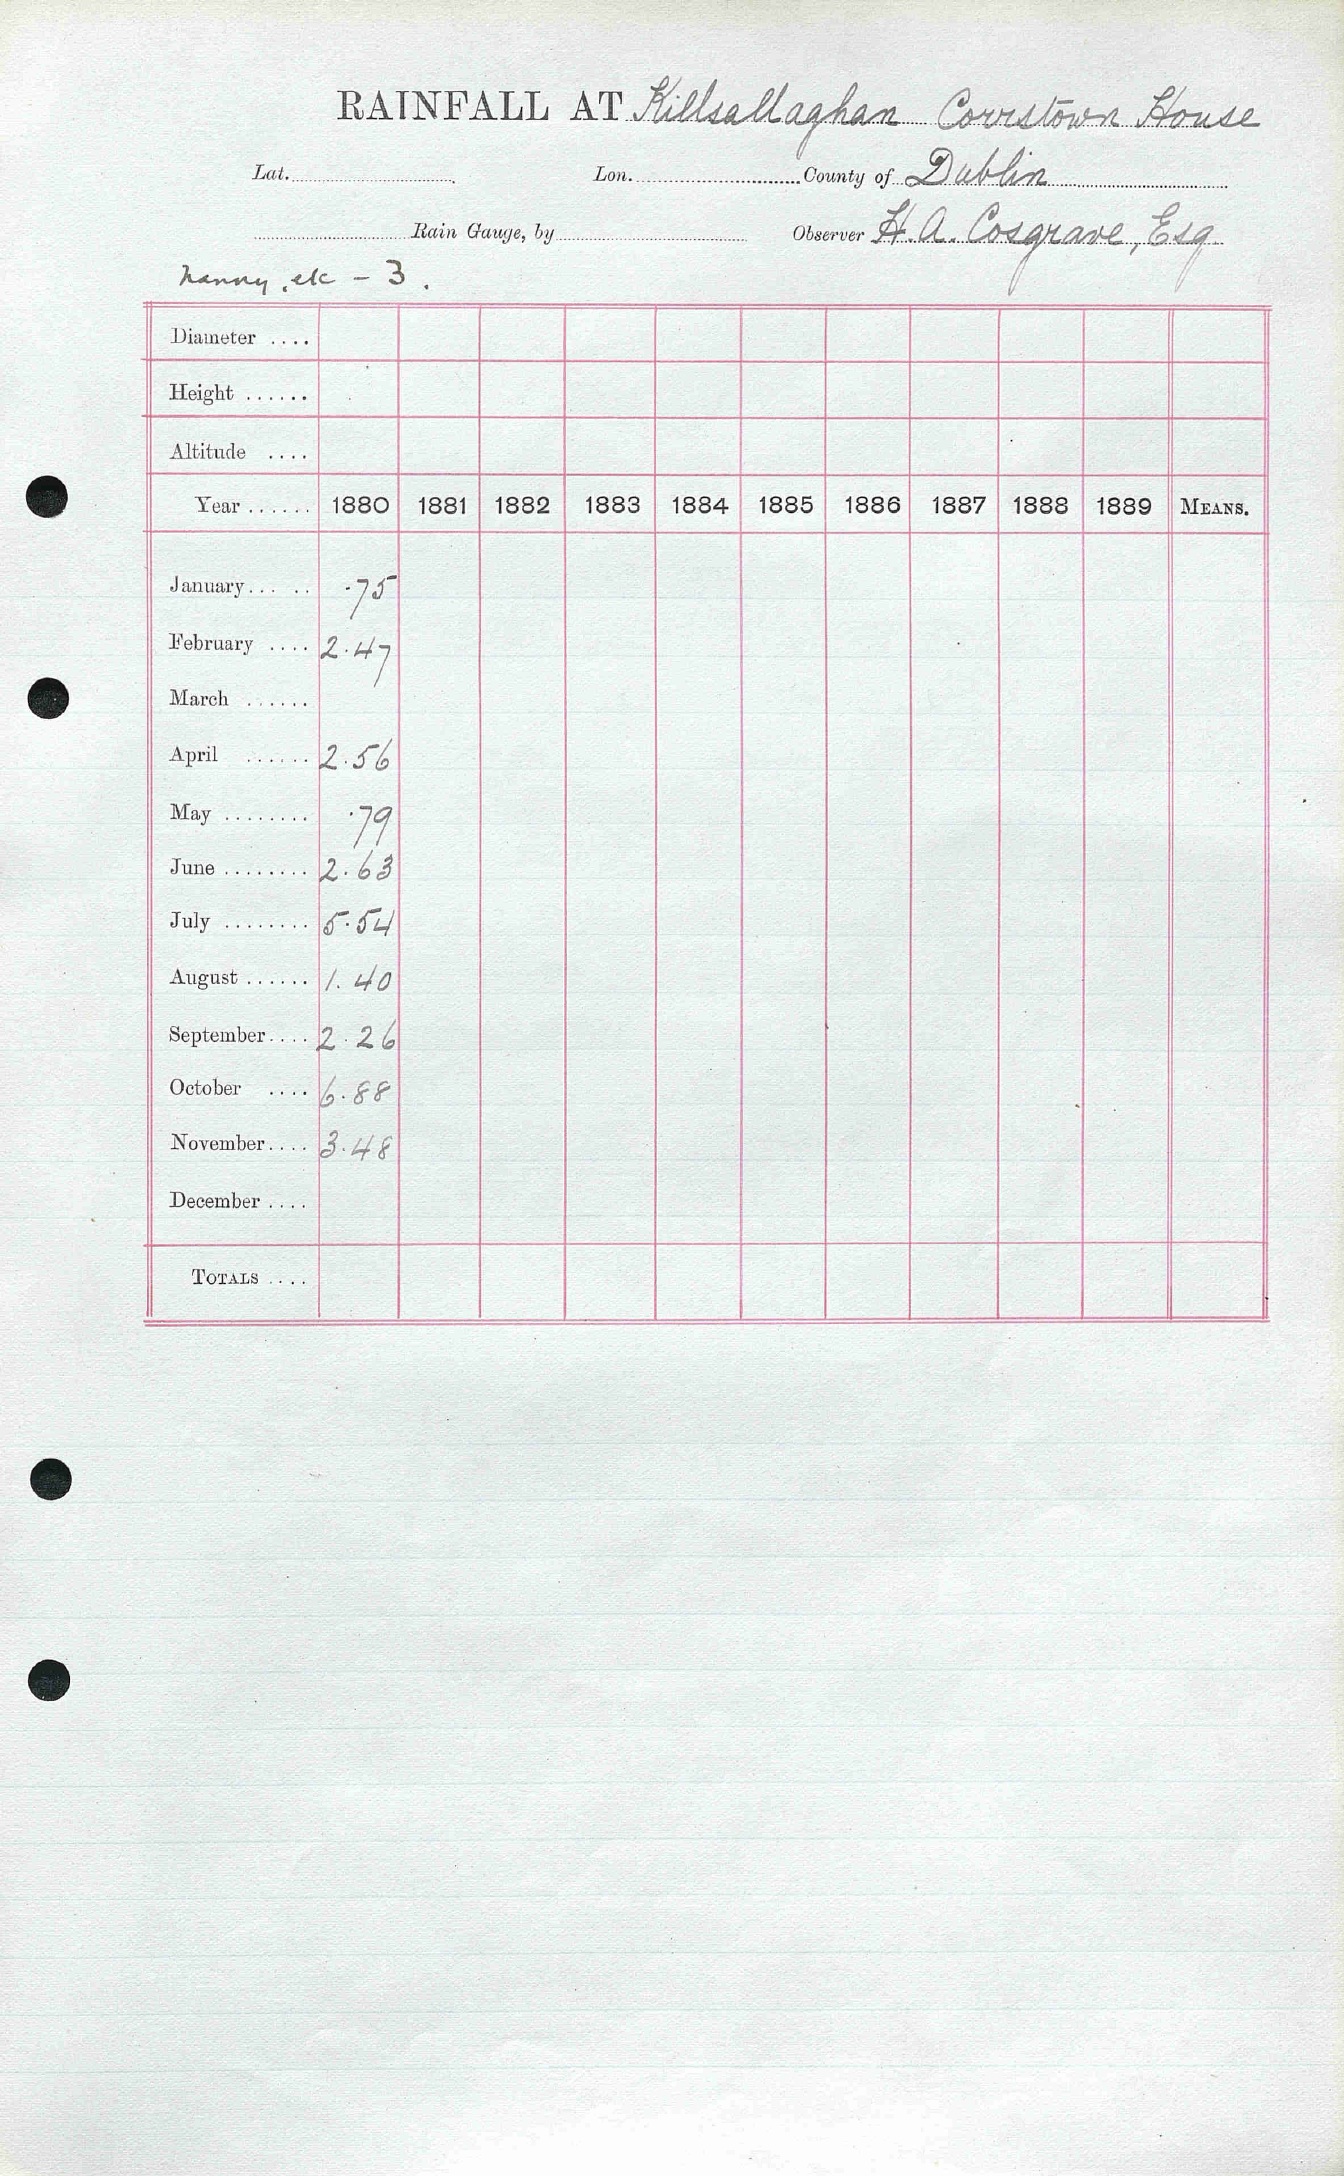 RAINFALL AT Killsallaghan Corrstown House
Lat. Lon. County of Dublin
Rain Gauge, by Observer H. A. Cosgrave, Esq
Nanny, etc - 3.
Diameter ....
Height ......
Altitude ....
Year ...... 1880 1881 1882 1883 1884 1885 1886 1887 1888 1889 MEANS.
January ... .. .75
February .... 2.47
March ......
April ...... 2.56
May ........ .79
June ........ 2.63
July ........ 5.54
August ...... 1.40
September .... 2.26
October .... 6.88
November .... 3.48
December ....
TOTALS ....